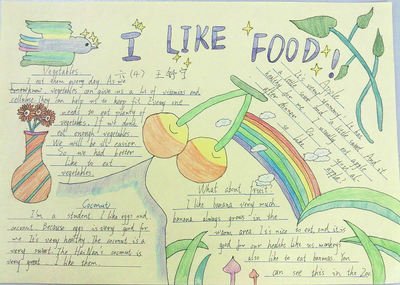 I LIKE FOOD!
Vegetables
六(4)
I eat them every day. As we
vegetables can give us a lot of vitamins and
cellulose. They can help us to keep fit. Every one
needs to eat plenty of
vegetables. If we don't
eat enough vegetables.
We will be ill easier.
So we had better
like to eat
vegetables.
Coconut
I'm a student. I like eggs and
coconut. Because eggs is very good for
me. It's very healthy. The coconut is a
very sweet. The HaiNan's coconut is
very great. I like them.
What about fruit
I like banana very much.
banana always grows in the
warm area. It's nice to eat, and it is
good for our health like us. monkeys
also like to eat bananas. You
can see this in the Zoo.
Apple
It's very yummy! It has
a little sweet and a little
And it
good for me. I usually eat apple
after dinner.